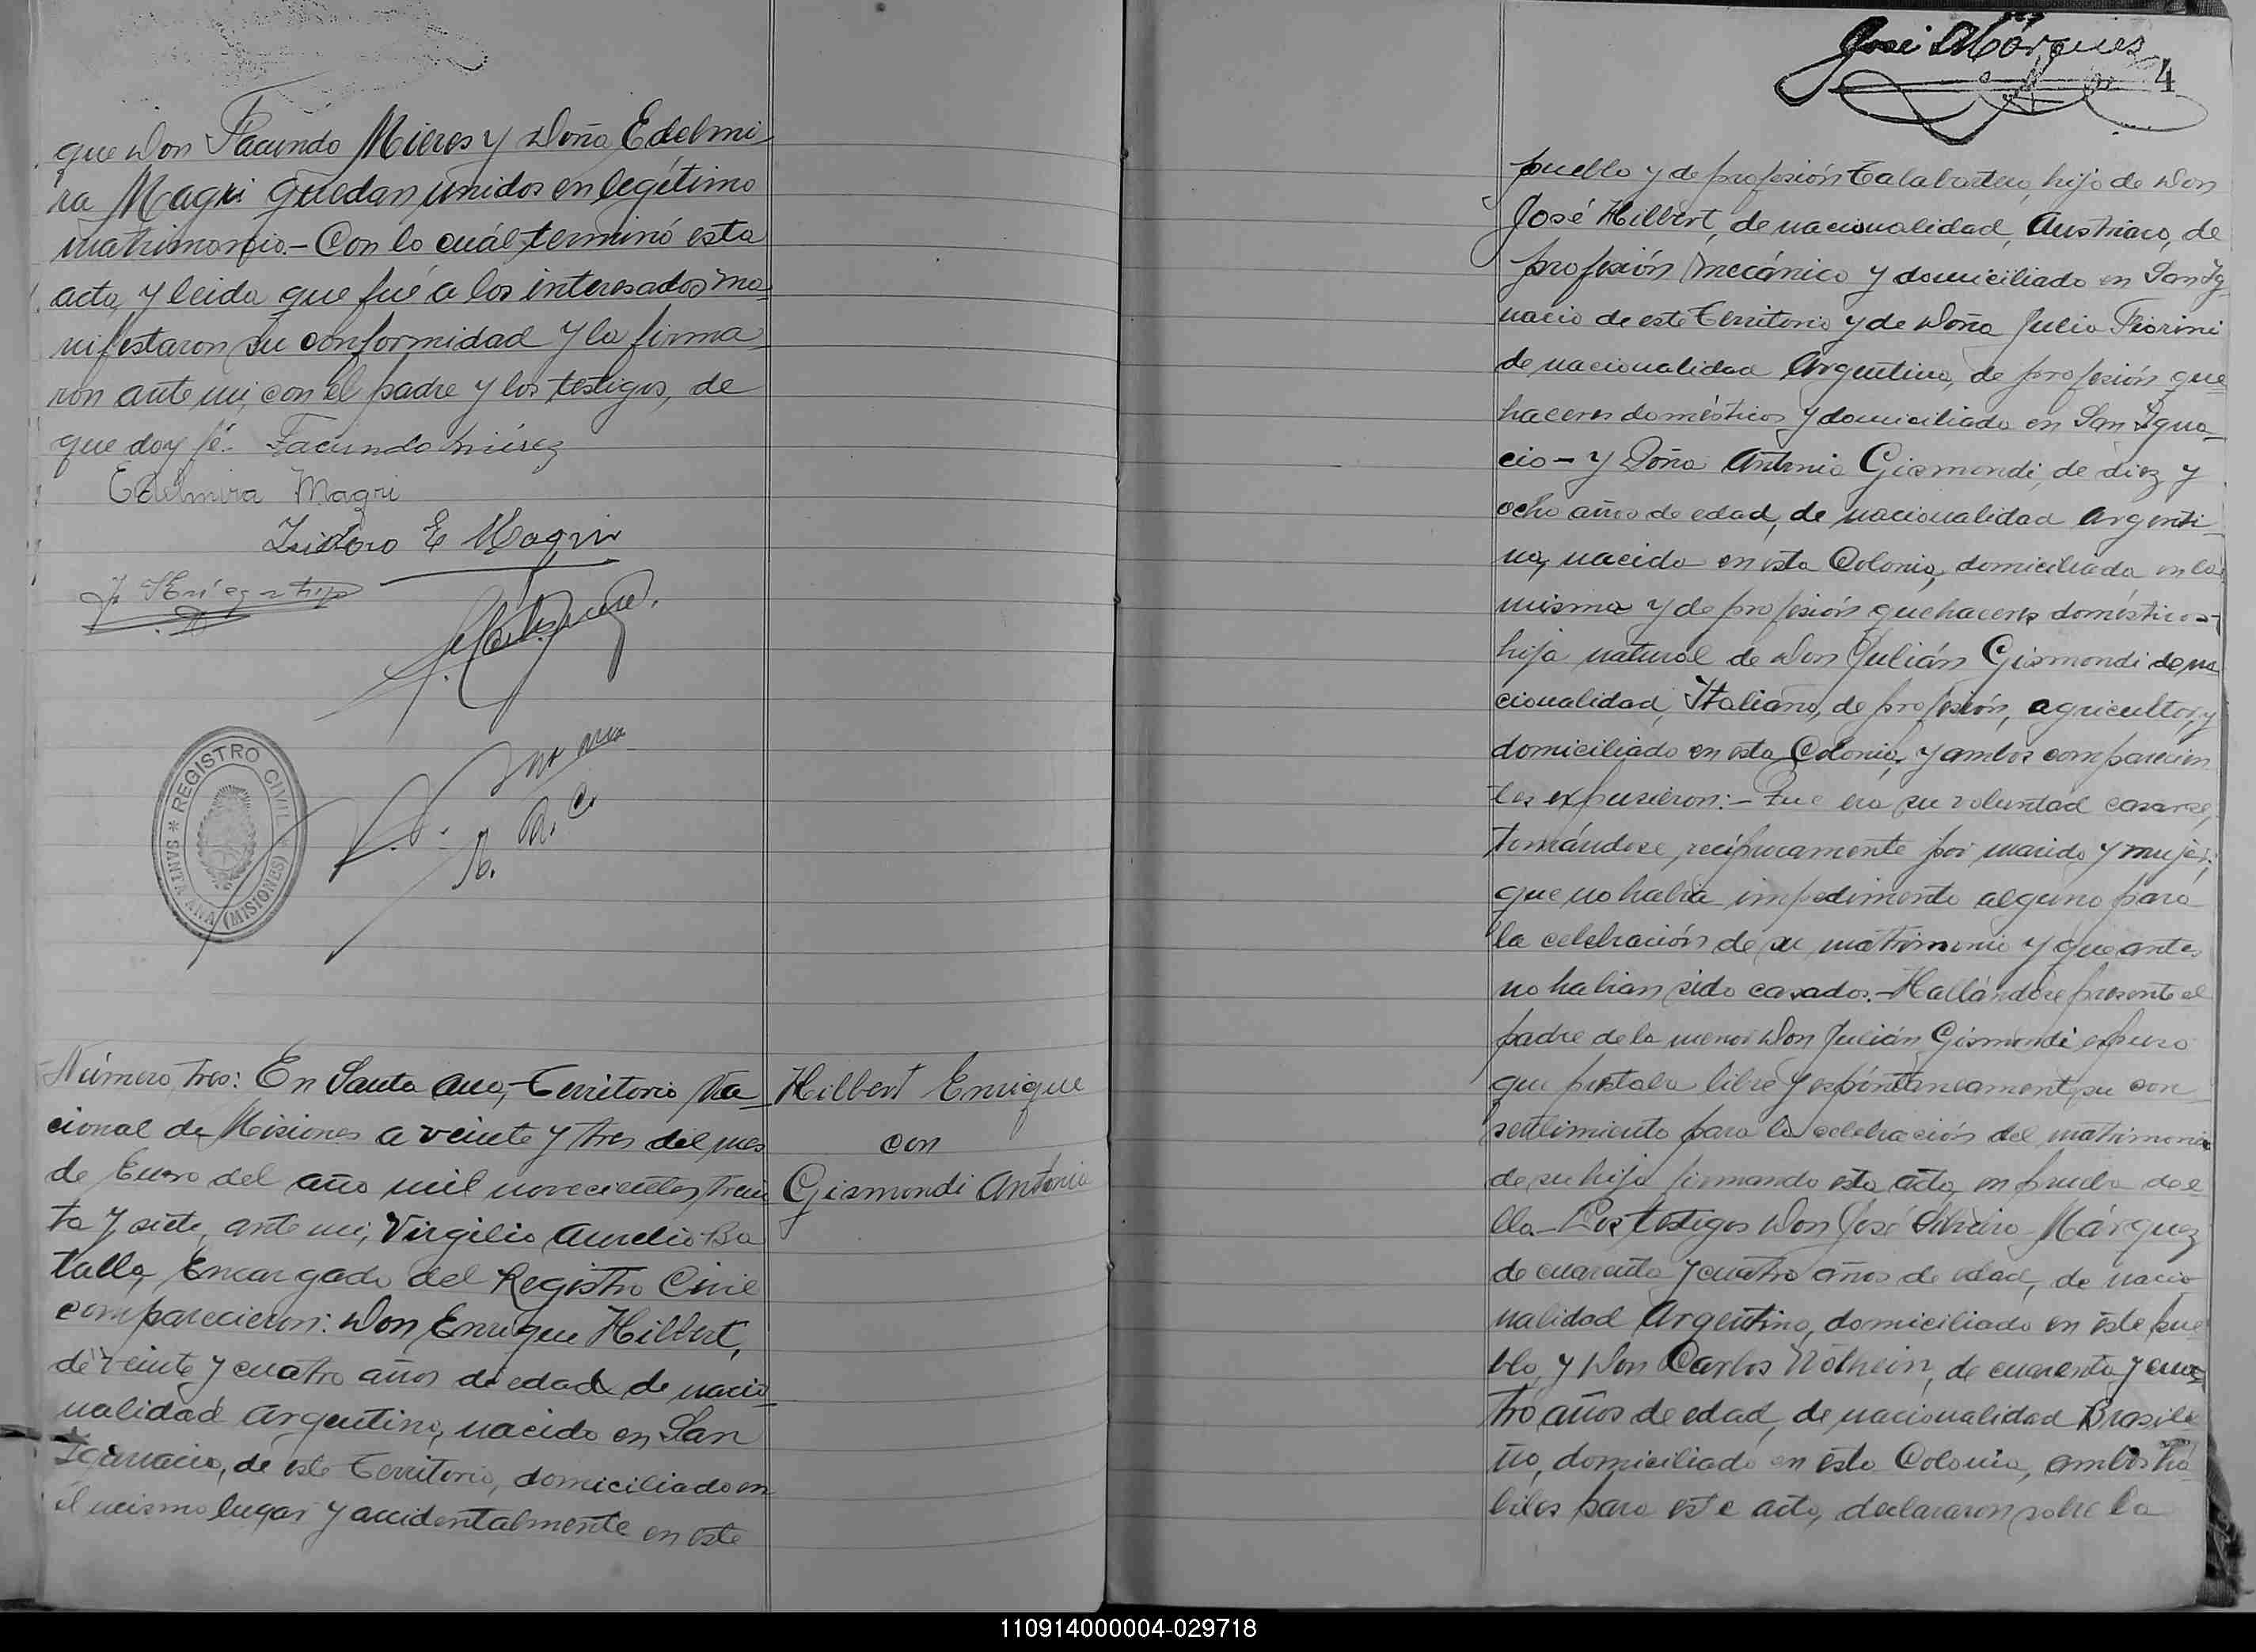 que Don Facundo Mieres y Doña Edelmi-
ra Magri quedan unidos en legítimo
matrimonio.- Con lo cuál terminó esta
acta, y leida que fué a los interesados ma-
nifestaron su conformidad y la firma-
ron ante mi, con el padre y los testigos, de
que doy fé.- Facundo
Edelmira Magri
Isidoro E Magri
REGISTRO CIVIL
* SANTA ANA (MISIONES) *
Número, tres: En Santa Ana, Territorio Na-
cional de Misiones a veinte y tres del mes
de Enero del año mil novecientos, trein
ta y siete, ante mi, Virgilio Aurelio Ba
talla, Encargado del Registro Civil
comparecieron: Don Enrique Hilbert,
de veinte y cuatro años de edad de nacio-
nalidad Argentina, nacido en San
Ignacio, de este Territorio, domiciliado en
el mismo lugar y accidentalmente en este
Hilbert Enrique
con
Gismondi Antonia
José Márquez
4
pueblo y de profesión talabartero, hijo de Don
José Hilbert, de nacionalidad, Austriaco, de
profesión mecánico y domiciliado en San Ig-
nacio de este Territorio y de Doña Julia Fiorini
de nacionalidad Argentina, de profesión que-
haceres domésticos y domiciliada en San Igna-
cio - y Doña Antonia Gismondi, de diez y
ocho años de edad, de nacionalidad Argenti-
na, nacida en esta Colonia, domiciliada en la
misma y de profesión quehaceres domésticos-
hija natural de Don Julián Gismondi de na-
cionalidad, Italiano, de profesión, agricultor, y
domiciliado en esta Colonia, y ambos comparecien
tes expusieron:- Que era su voluntad casarse,
tomándose, recíprocamente por marido y mujer;
que no había impedimento alguno para
la celebración de su matrimonio y que antes
no habian sido casados.- Hallándose presente el
padre de la menor Don Julián Gismondi expuso
que prestaba libre y espontáneamente, su con-
sentimiento para la celebración del matrimonio
de su hija firmando esta acta, en prueba de e
lla.- Los testigos Don José Márquez
de cuarenta y cuatro años de edad, de nacio-
nalidad Argentino, domiciliado en este pue
blo, y Don Carlos de cuarenta y cua-
tro años de edad, de nacionalidad Brasile
ño, domiciliado en esta Colonia, ambos há-
biles para este acto, declararon sobre la
110914000004-029718